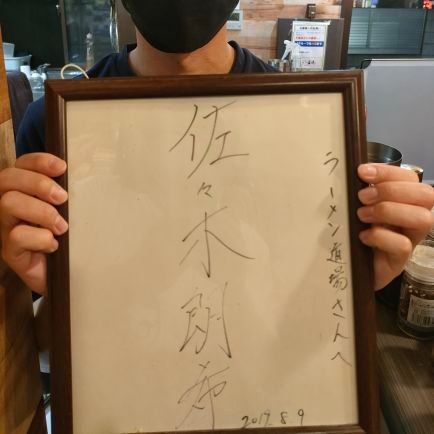 ラーメン道場さんへ
佐々木朗希
2019.8.9